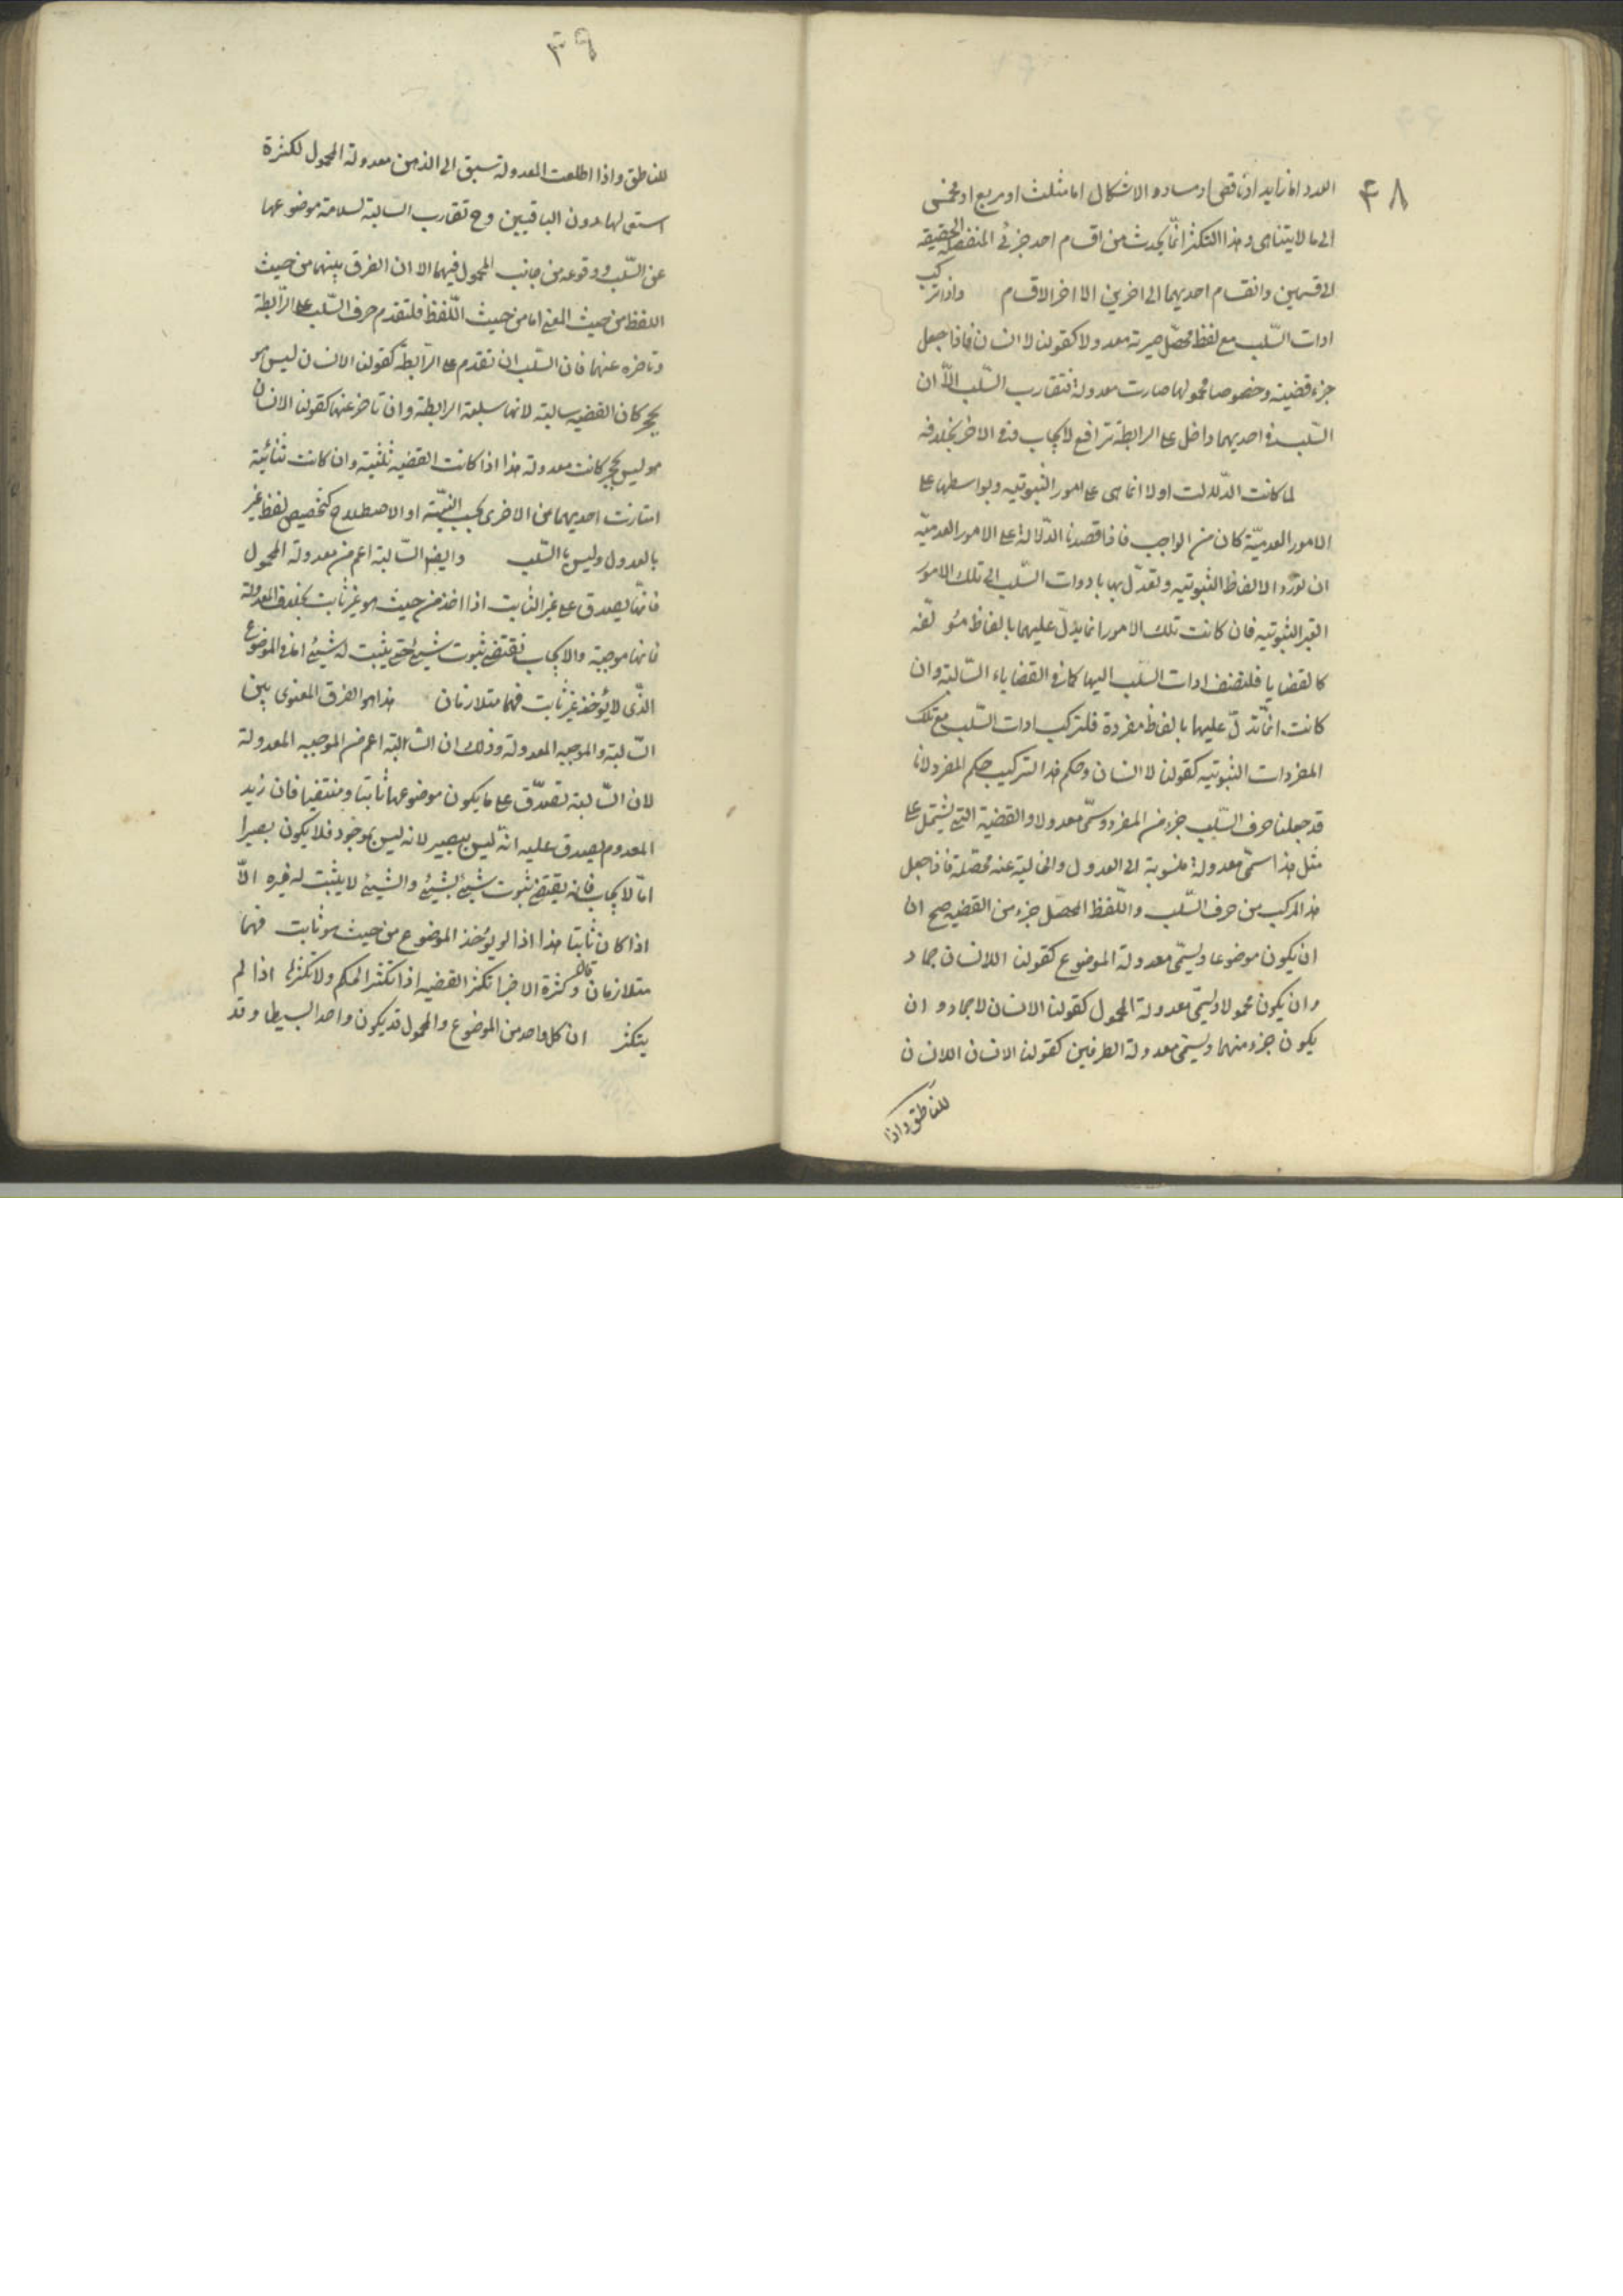 ٣٨
العدد اما زايد او ناقص او مساو و الاشكال اما مثلث او مربع او مخمس
الى ما لا يتناهى و هذا التكثر انما يحدث من اقسام احد جزئى المنفصله الحقيقه
الى قسمين و انقسام احديهما الى اخرين الا اخر الاقسام واذا تركب
ادات السّلب مع لفظ محصّل صيرته معدولا كقولنا لا انسان فاذا جعل
جزء قضيته و خصوصا محمولها صارت معدولة فتقارب السّلب الّا ان
السّلب فى احديهما داخل على الرابطة ترافع لايجاب و فى الاخر بخلافه
لما كانت الدّلالت اولا انما هى على امور الثبوتيه و بواسطها على
الامور العدميّة كان من الواجب فاذا قصدنا الدّلالة على الامور العدميّه
ان نورد الالفاظ الثبوتيه و نعدّل بها بادوات السّلب الى تلك الامور
الغير الثبوتيه فان كانت تلك الامور انما يدلّ عليهما بالفاظ مئو لّفه
كالقضايا فلنضف ادات السّلب اليها كما فى القضاياء السّالبة و ان
كانت انمّا تدلّ عليهما بالفاظ مفردة فلنركب ادات السّلب مع تلك
المفردات الثبوتيه كقولنا لا انسان و حكم هذا التركيب حكم المفرد لانا
قد جعلنا حرف السّلب جزء من المفرد و سمّى معدولا و القضية التى يشتمل على
مثل هذا اسمّى معدولة منسوبة الى العدول و الخاليه عنه محصّلة فاذا جعل
هذا المركب من حرف السّلب و اللّفظ المحصّل جزء من القضيه صح ان
ان يكون موضوعا و يسمّى معدولة الموضوع كقولنا اللاانسان جماد
و ان يكون محمولا و يسمّى معدولة المحمول كقولنا الانسان لاجماد و ان
يكون جزء منهما و يسمّى معدولة الطرفين كقولنا الانسان اللاانسان
للناطق و اذا
٣٩
للناطق و اذا اطلعت المعدولة تسبق الى الذهن معدولة المحمول لكثرة
استعمالها دون الباقيين و ح تقارب السالبة لسلامة موضوعها
عن السّلب و وقوعه من جانب المحمول فيهما الا ان الفرق بينهما من حيث
اللفظ من حيث المعنى اما من حيث اللّفظ فلتقدم حرف السّلب على الرّابطة
و تاخره عنها فان السّلب ان تقدم على الرّابطة كقولنا الانسان ليس هو
بحجر كان القضيه سالبة لانها سلبة الرابطة و ان تاخر عنها كقولنا الانسان
هو ليس بحجر كانت معدولة هذا اذا كانت القضيه ثلثية و ان كانت ثنائية
امتازت احديهما من الاخرى بحسب النيّة او الاصطلاح كتخصيص لفظ غير
بالعدول و ليس بالسّلب و ايضا السّالبة اعم من معدولة المحمول
فانّها يصدق على غير الثابت اذا اخذ من حيث هو غير ثابت بخلاف المعدولة
فانها موجبة و الايجاب تقتضى ثبوت شيئ حتى يثبت له شيئ اما فى الموضوع
الذّى لا يؤخذ غير ثابت فهما متلازمان هذا هو الفرق المعنوى بين
السّالبة و الموجبه المعدولة و ذلك ان السّالبة اعم من الموجبه المعدولة
لان السّالبة تصدّق على ما يكون موضوعها ثابتا و منتفيا فان زيد
المعدوم يصدق عليه انّه ليس ببصير لانه ليس بموجود فلا يكون بصيرا
امّا لايجاب فانه يقتضى ثبوت شيئ لشيئ و الشيئ لا يثبت له غيره الّا
اذا كان ثابتا هذا اذا لو يؤخذ الموضوع من حيث هو ثابت فهما
متلازمان قاله و كثرة الاجزا تكثر القضيه اذا تكثر الحكم و لا تكثر لها اذا لم
يتكثر ان كل واحد من الموضوع و المحمول قد يكون واحد البسيطا و قد